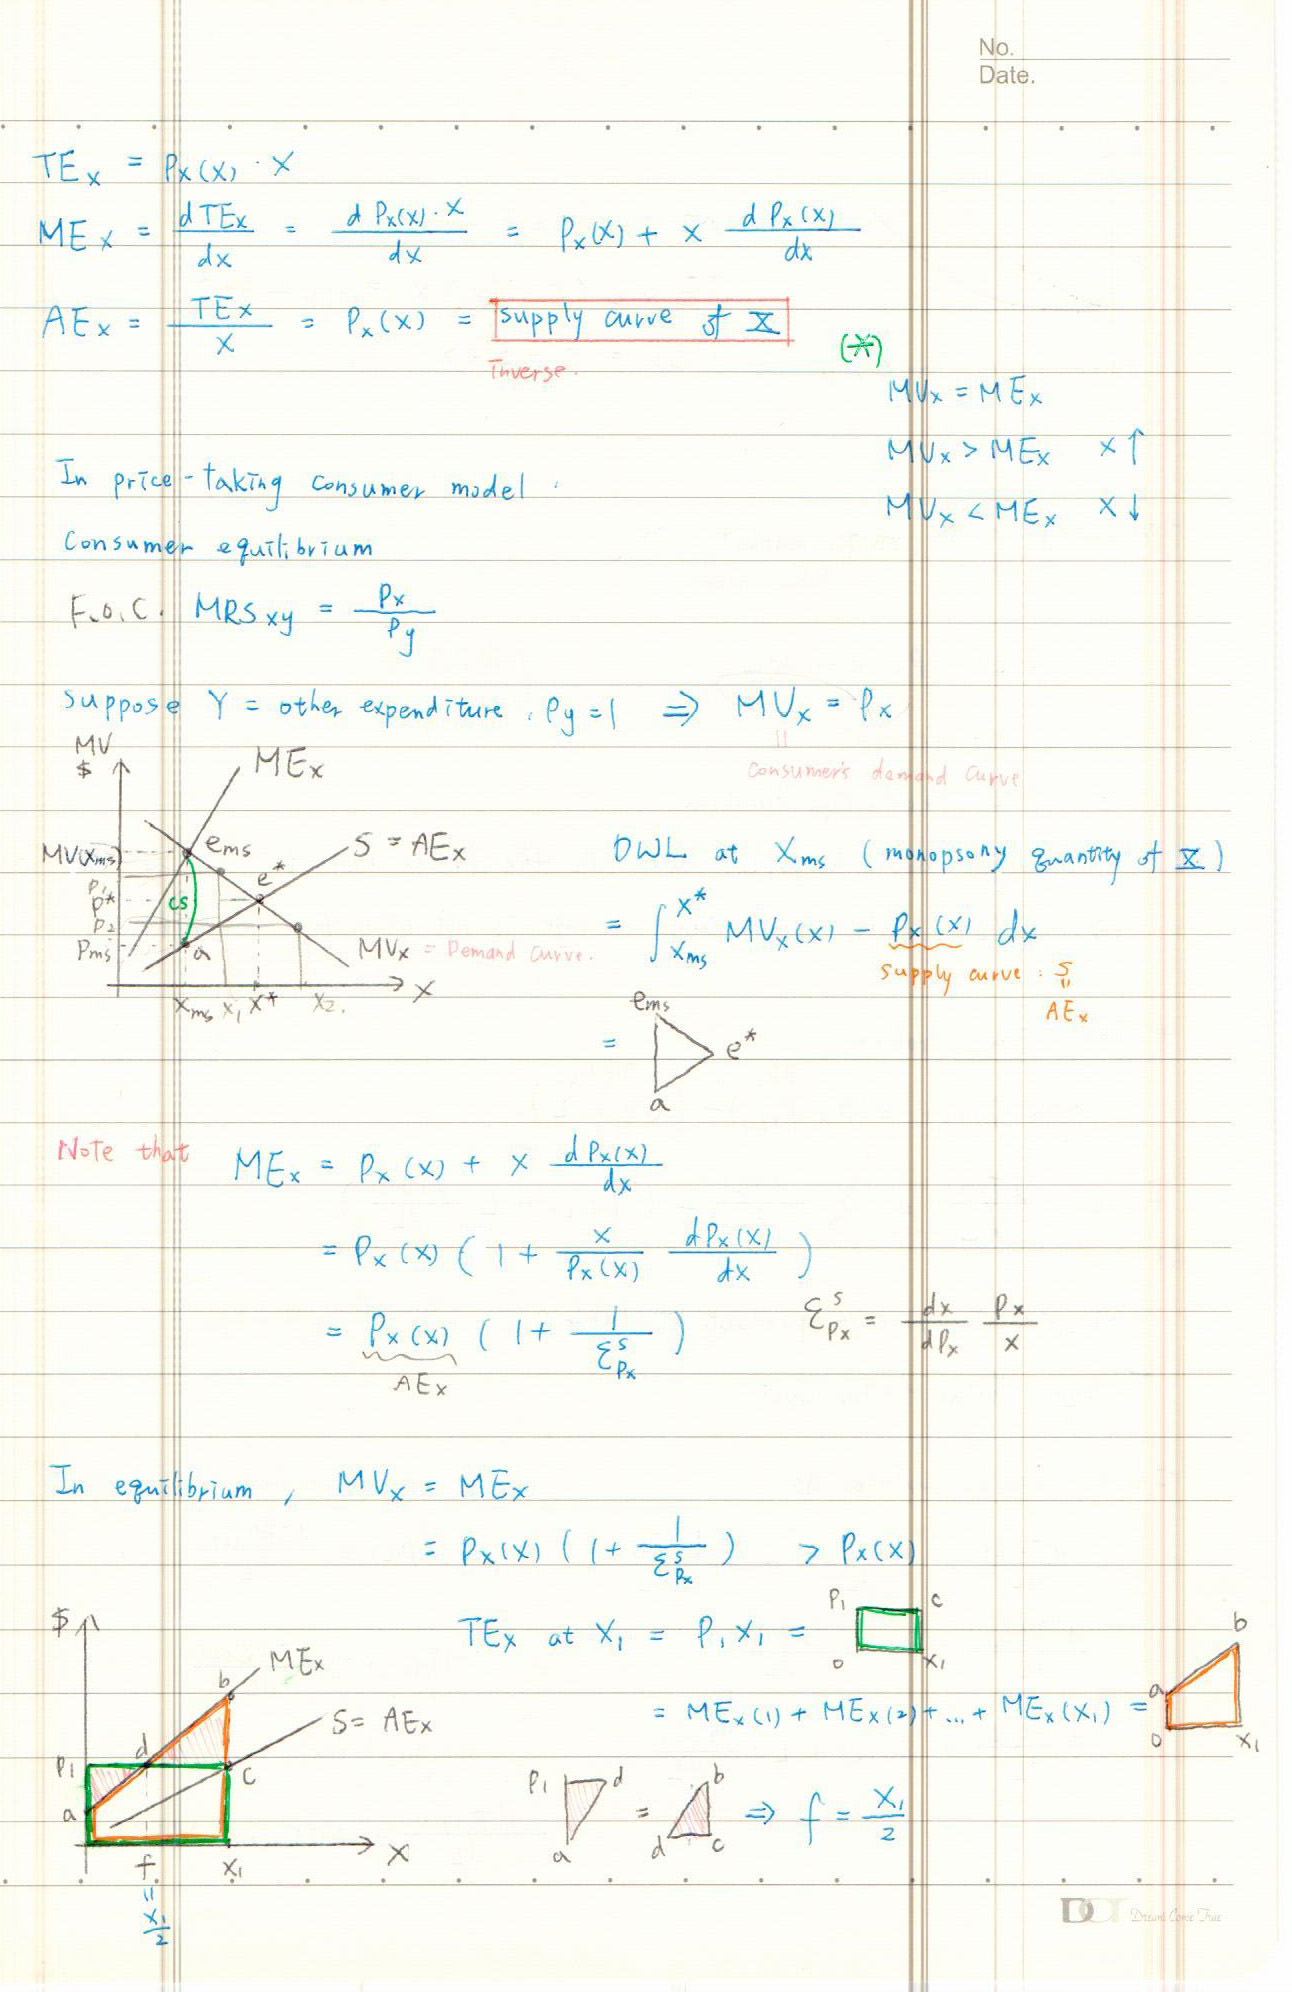 No.
Date.
TEx = Px(x) · X
MEx = dTEx/dx = d Px(x)·x/dx = Px(x) + x d Px(x)/dx
AEx = TEx/X = Px(x) = supply curve of X
Inverse.
(*)
MVx = MEx
MVx > MEx X↑
MVx < MEx X↓
In price-taking consumer model.
Consumer equilibrium
F.O.C. MRSxy = Px/Py
suppose Y = other expenditure, Py=1 ⇒ MVx = Px
॥
Consumer's demand curve
MV
$
MEx
MV(Xms)
P1
P*
P2
Pms
ems
CS
e*
a
S = AEx
MVx = Demand curve.
Xms X1 X* X2.
X
DWL at Xms (monopsony quantity of X)
= ∫ Xms X* MVx(x) - Px(x) dx
supply curve : S
॥
AEx
= ems e* a
Note that MEx = Px(x) + x dPx(x)/dx
= Px(x) ( 1 + x/Px(x) dPx(x)/dx )
= Px(x) ( 1 + 1/εˢPx )
AEx
εˢPx = dx/dPx Px/x
In equilibrium, MVx = MEx
= Px(x) ( 1 + 1/εˢPx ) > Px(x)
TEx at X1 = P1X1 = P1 c o X1
= MEx(1) + MEx(2) + ... + MEx(X1) = a b o X1
$
MEx
b
S = AEx
P1
d
c
a
f
X1
X
॥
X1/2
P1 d a = b d c ⇒ f = X1/2
DCT Dream Come True